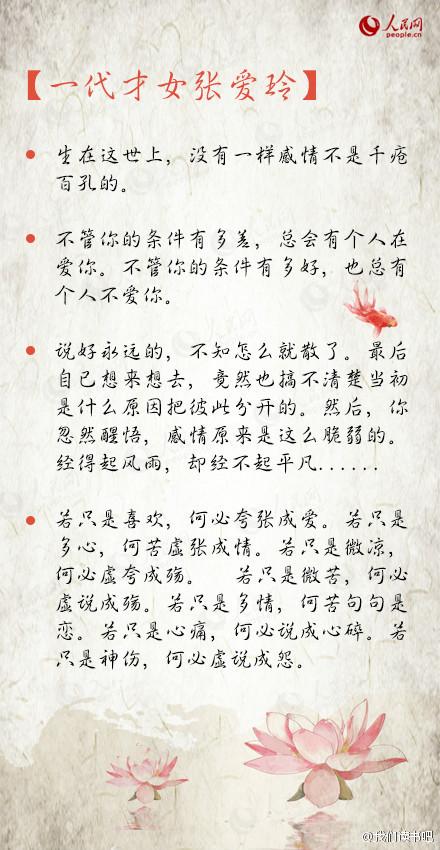 人民网
people.cn
【一代才女张爱玲】
生在这世上，没有一样感情不是千疮
百孔的。
不管你的条件有多差，总会有个人在
爱你。不管你的条件有多好，也总有
个人不爱你。
说好永远的，不知怎么就散了。最后
自己想来想去，竟然也搞不清楚当初
是什么原因把彼此分开的。然后，你
忽然醒悟，感情原来是这么脆弱的。
经得起风雨，却经不起平凡......
若只是喜欢，何必夸张成爱。若只是
多心，何苦虚张成情。若只是微凉，
何必虚夸成殇。　若只是微苦，何必
虚说成殇。若只是多情，何苦句句是
恋。若只是心痛，何必说成心碎。若
只是神伤，何必虚说成怨。
@我们读书吧